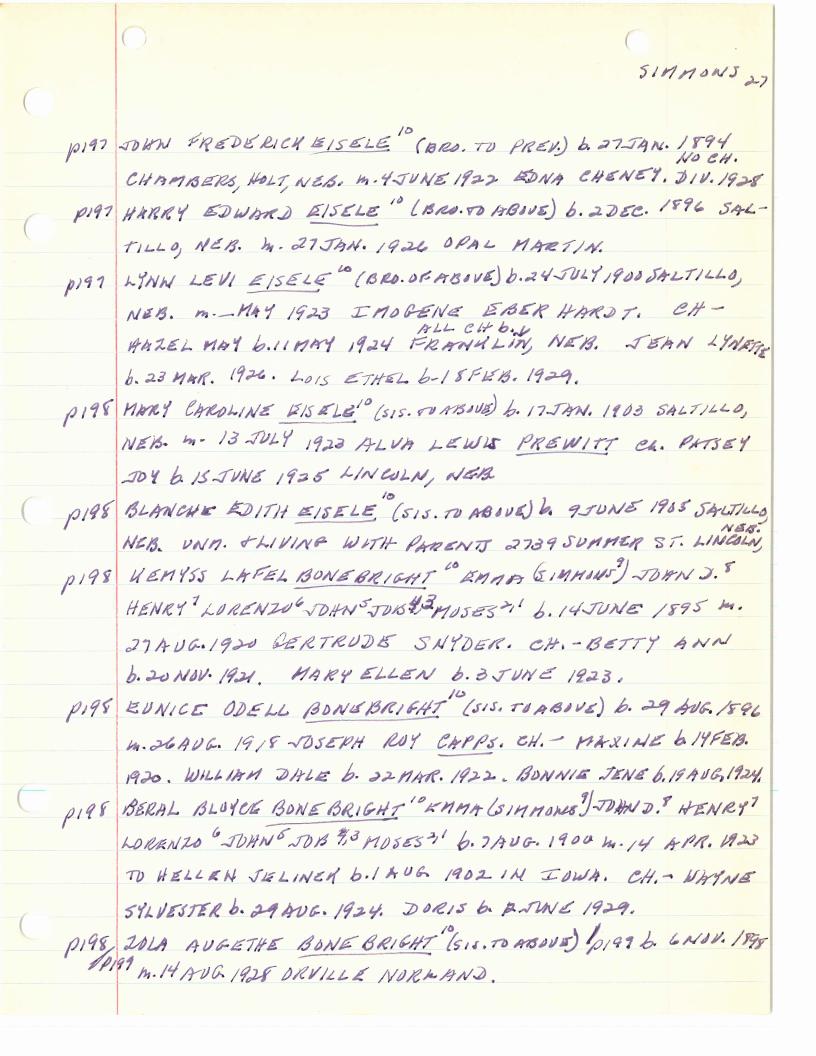 SIMMONS 27
p197 JOHN FREDERICK EISELE 10 (BRO. TO PREV.) b. 27 JAN. 1894
NO CH.
CHAMBERS, HOLT, NEB. m. 4 JUNE 1922 EDNA CHENEY. DIV. 1928
p197 HARRY EDWARD EISELE 10 (BRO. TO ABOVE) b. 2 DEC. 1896 SAL-
TILLO, NEB. m. 27 JAN. 1926 OPAL MARTIN.
p197 LYNN LEVI EISELE 10 (BRO. OF ABOVE) b. 24 JULY 1900 SALTILLO,
NEB. m. — MAY 1923 IMOGENE EBERHARDT. CH-
ALL CH b. ↓
HAZEL MAY b. 11 MAY 1924 FRANKLIN, NEB. JEAN LYNETTE
b. 23 MAR. 1926. LOIS ETHEL b- 18 FEB. 1929.
p198 MARY CAROLINE EISELE 10 (SIS. TO ABOVE) b. 17 JAN. 1903 SALTILLO,
NEB. m- 13 JULY 1923 ALVA LEWIS PREWITT Ch. PATSEY
JOY b. 15 JUNE 1925 LINCOLN, NEB
p198 BLANCHE EDITH EISELE 10 (SIS. TO ABOVE) b. 9 JUNE 1905 SALTILLO,
NEB.
NEB. UNM. & LIVING WITH PARENTS 2739 SUMMER ST. LINCOLN,
p198 KEMYSS LAFEL BONEBRIGHT 10 EMMA (SIMMONS 9) JOHN D. 8
HENRY 7 LORENZO 6 JOHN 5 JOB 4,3 MOSES 2,1 b. 14 JUNE 1895 m.
27 AUG. 1920 GERTRUDE SNYDER. CH.- BETTY ANN
b. 20 NOV. 1921. MARY ELLEN b. 3 JUNE 1923.
p198 EUNICE ODELL BONEBRIGHT 10 (SIS. TO ABOVE) b. 29 AUG. 1896
m. 26 AUG. 1918 JOSEPH ROY CAPPS. CH.- MAXINE b. 14 FEB.
1920. WILLIAM DALE b. 22 MAR. 1922. BONNIE JENE b. 19 AUG. 1924.
p198 BERAL BLOYCE BONEBRIGHT 10 EMMA (SIMMONS 9) JOHN D. 8 HENRY 7
LORENZO 6 JOHN 5 JOB 4,3 MOSES 2,1 b. 7 AUG. 1900 m. 14 APR. 1923
TO HELLEN JELINEK b. 1 AUG. 1902 IN IOWA. CH.- WAYNE
SYLVESTER b. 29 AUG. 1924. DORIS b. 2 JUNE 1929.
p198/p199 ZOLA AUGETHE BONEBRIGHT 10 (SIS. TO ABOVE) /p199 b. 6 NOV. 1898
m. 14 AUG. 1928 ORVILLE NORLAND.